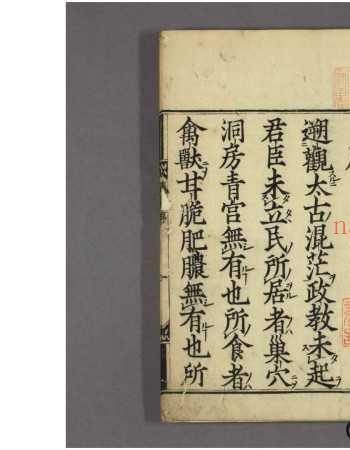 遡觀太古混茫政教未起
君臣未立民所居者巢穴
洞房青宮無有也所食者
禽獸甘脆肥膿無有也所